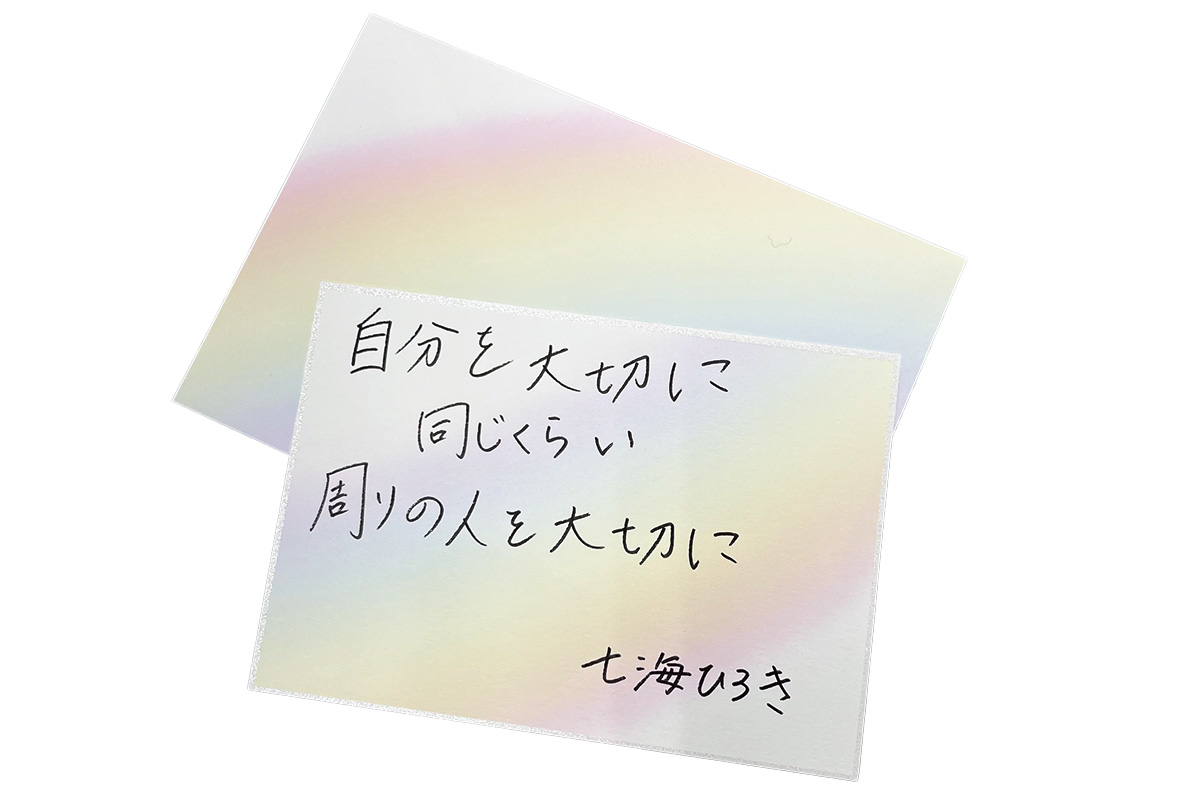 自分を大切に
同じくらい
周りの人を大切に
七海ひろき